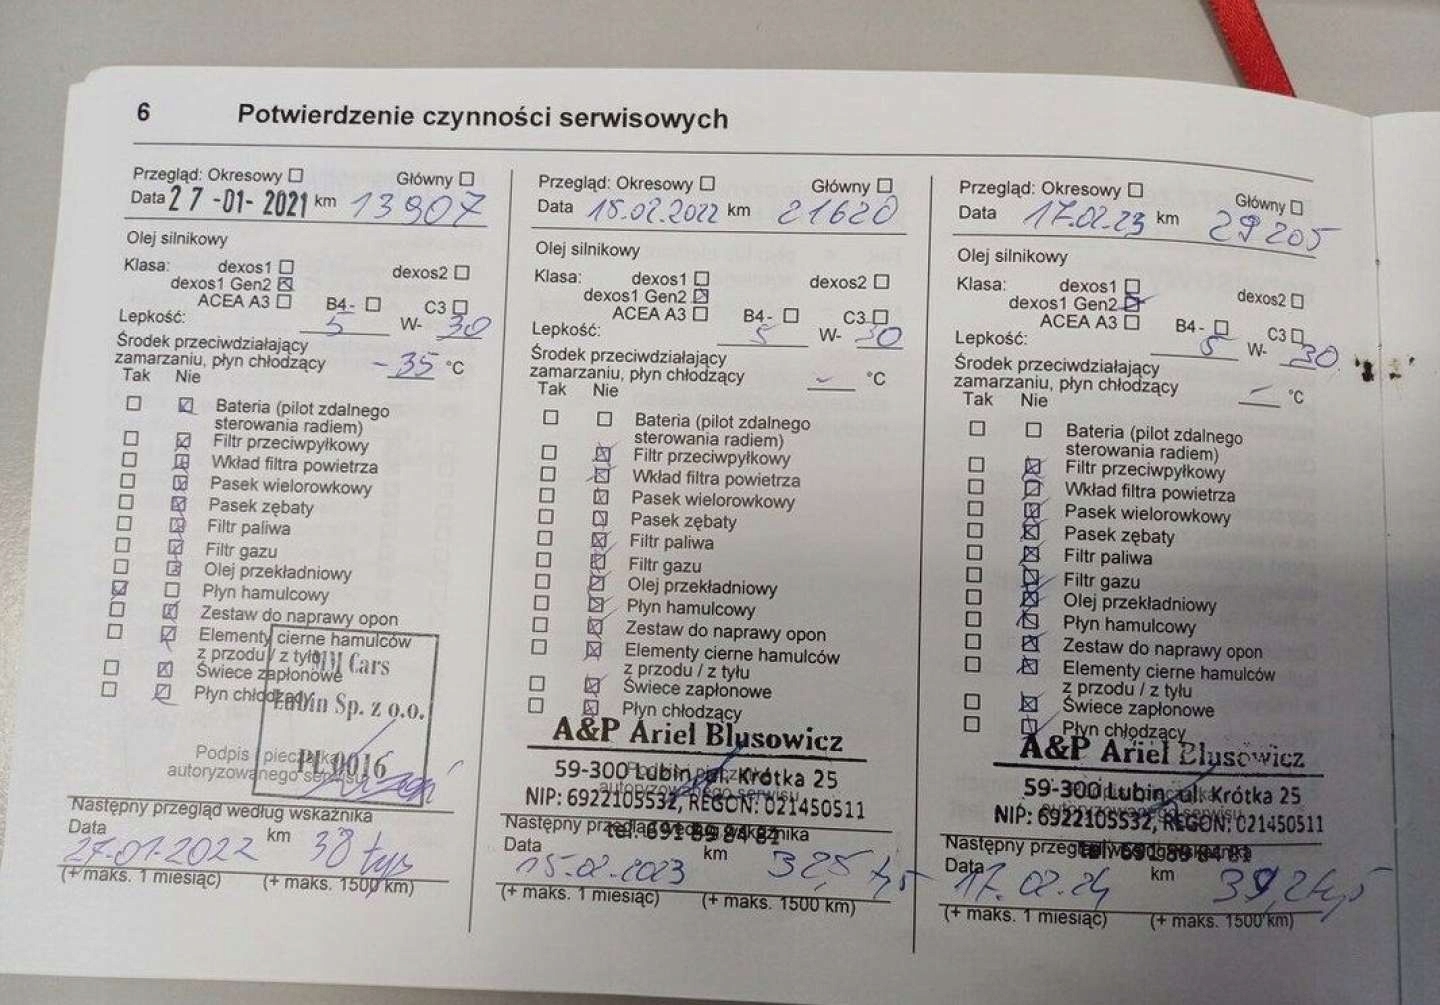 6 Potwierdzenie czynności serwisowych
Przegląd: Okresowy Główny
Data 27-01-2021 km 13907
Olej silnikowy
Klasa: dexos1 dexos2
dexos1 Gen2
ACEA A3 B4- C3
Lepkość: 5 W- 30
Środek przeciwdziałający
zamarzaniu, płyn chłodzący -35 °C
Tak Nie
Bateria (pilot zdalnego
sterowania radiem)
Filtr przeciwpyłkowy
Wkład filtra powietrza
Pasek wielorowkowy
Pasek zębaty
Filtr paliwa
Filtr gazu
Olej przekładniowy
Płyn hamulcowy
Zestaw do naprawy opon
Elementy cierne hamulców
z przodu / z tyłu
Świece zapłonowe
Płyn chłodzący
MM Cars
Lubin Sp. z o.o.
PL 0016
Podpis i pieczątka
autoryzowanego serwisu
Następny przegląd według wskaźnika
Data 27-01-2022 km 38 tys
(+ maks. 1 miesiąc) (+ maks. 1500 km)
Przegląd: Okresowy Główny
Data 15.02.2022 km 21620
Olej silnikowy
Klasa: dexos1 dexos2
dexos1 Gen2
ACEA A3 B4- C3
Lepkość: 5 W- 30
Środek przeciwdziałający
zamarzaniu, płyn chłodzący - °C
Tak Nie
Bateria (pilot zdalnego
sterowania radiem)
Filtr przeciwpyłkowy
Wkład filtra powietrza
Pasek wielorowkowy
Pasek zębaty
Filtr paliwa
Filtr gazu
Olej przekładniowy
Płyn hamulcowy
Zestaw do naprawy opon
Elementy cierne hamulców
z przodu / z tyłu
Świece zapłonowe
Płyn chłodzący
A&P Ariel Blusowicz
59-300 Lubin, ul. Krótka 25
autoryzowanego serwisu
NIP: 6922105532, REGON: 021450511
Następny przegląd według wskaźnika
tel. 691 89 84 81
Data 15.02.2023 km 32,5 tys
(+ maks. 1 miesiąc) (+ maks. 1500 km)
Przegląd: Okresowy Główny
Data 17.02.23 km 29205
Olej silnikowy
Klasa: dexos1 dexos2
dexos1 Gen2
ACEA A3 B4- C3
Lepkość: 5 W- 30
Środek przeciwdziałający
zamarzaniu, płyn chłodzący - °C
Tak Nie
Bateria (pilot zdalnego
sterowania radiem)
Filtr przeciwpyłkowy
Wkład filtra powietrza
Pasek wielorowkowy
Pasek zębaty
Filtr paliwa
Filtr gazu
Olej przekładniowy
Płyn hamulcowy
Zestaw do naprawy opon
Elementy cierne hamulców
z przodu / z tyłu
Świece zapłonowe
Płyn chłodzący
A&P Ariel Blusowicz
59-300 Lubin, ul. Krótka 25
autoryzowanego serwisu
NIP: 6922105532, REGON: 021450511
Następny przegląd według wskaźnika
tel. 691 89 84 81
Data 17.02.24 km 39,2 tys
(+ maks. 1 miesiąc) (+ maks. 1500 km)